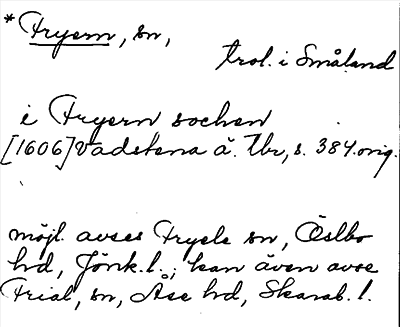 * Fryern, sn,
trol. i Småland
i Fryern sochen
[1606] Vadstena ä. Tbr, s. 384. orig.
möjl. avses Fryele sn, Östbo
hd, Jönk. l.; kan även avse
Friel, sn, Åse hd, Skarab. l.